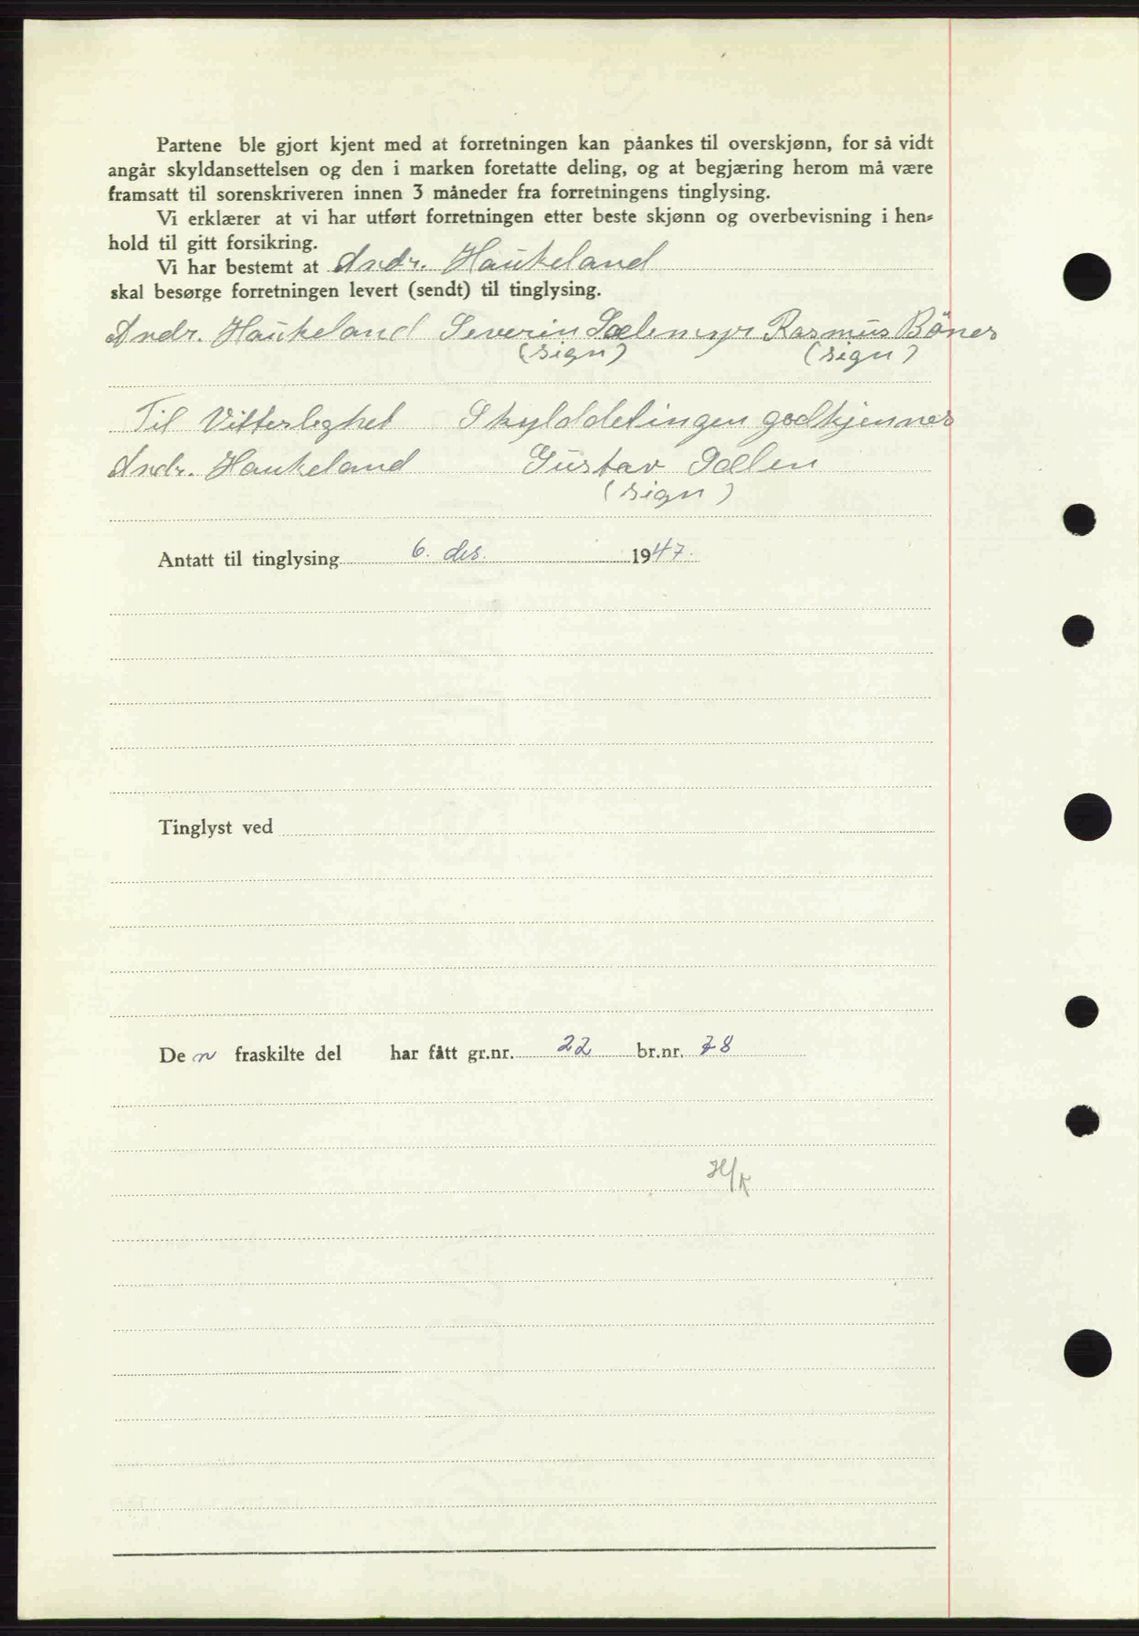 Partene ble gjort kjent med at forretningen kan påankes til overskjønn, for så vidt
angår skyldansettelsen og den i marken foretatte deling, og at begjæring herom må være
framsatt til sorenskriveren innen 3 måneder fra forretningens tinglysing.
Vi erklærer at vi har utført forretningen etter beste skjønn og overbevisning i hen-
hold til gitt forsikring.
Vi har bestemt at Andr. Haukeland
skal besørge forretningen levert (sendt) til tinglysing.
Andr. Haukeland Severin Sælemyr Rasmus Bönes
(sign) (sign)
Til Vitterlighet Skylddelingen godkjennes
Andr. Haukeland Gustav Sælen
(sign)
Antatt til tinglysing 6. des. 1947.
Tinglyst ved
Den fraskilte del har fått gr.nr. 22 br.nr. 78